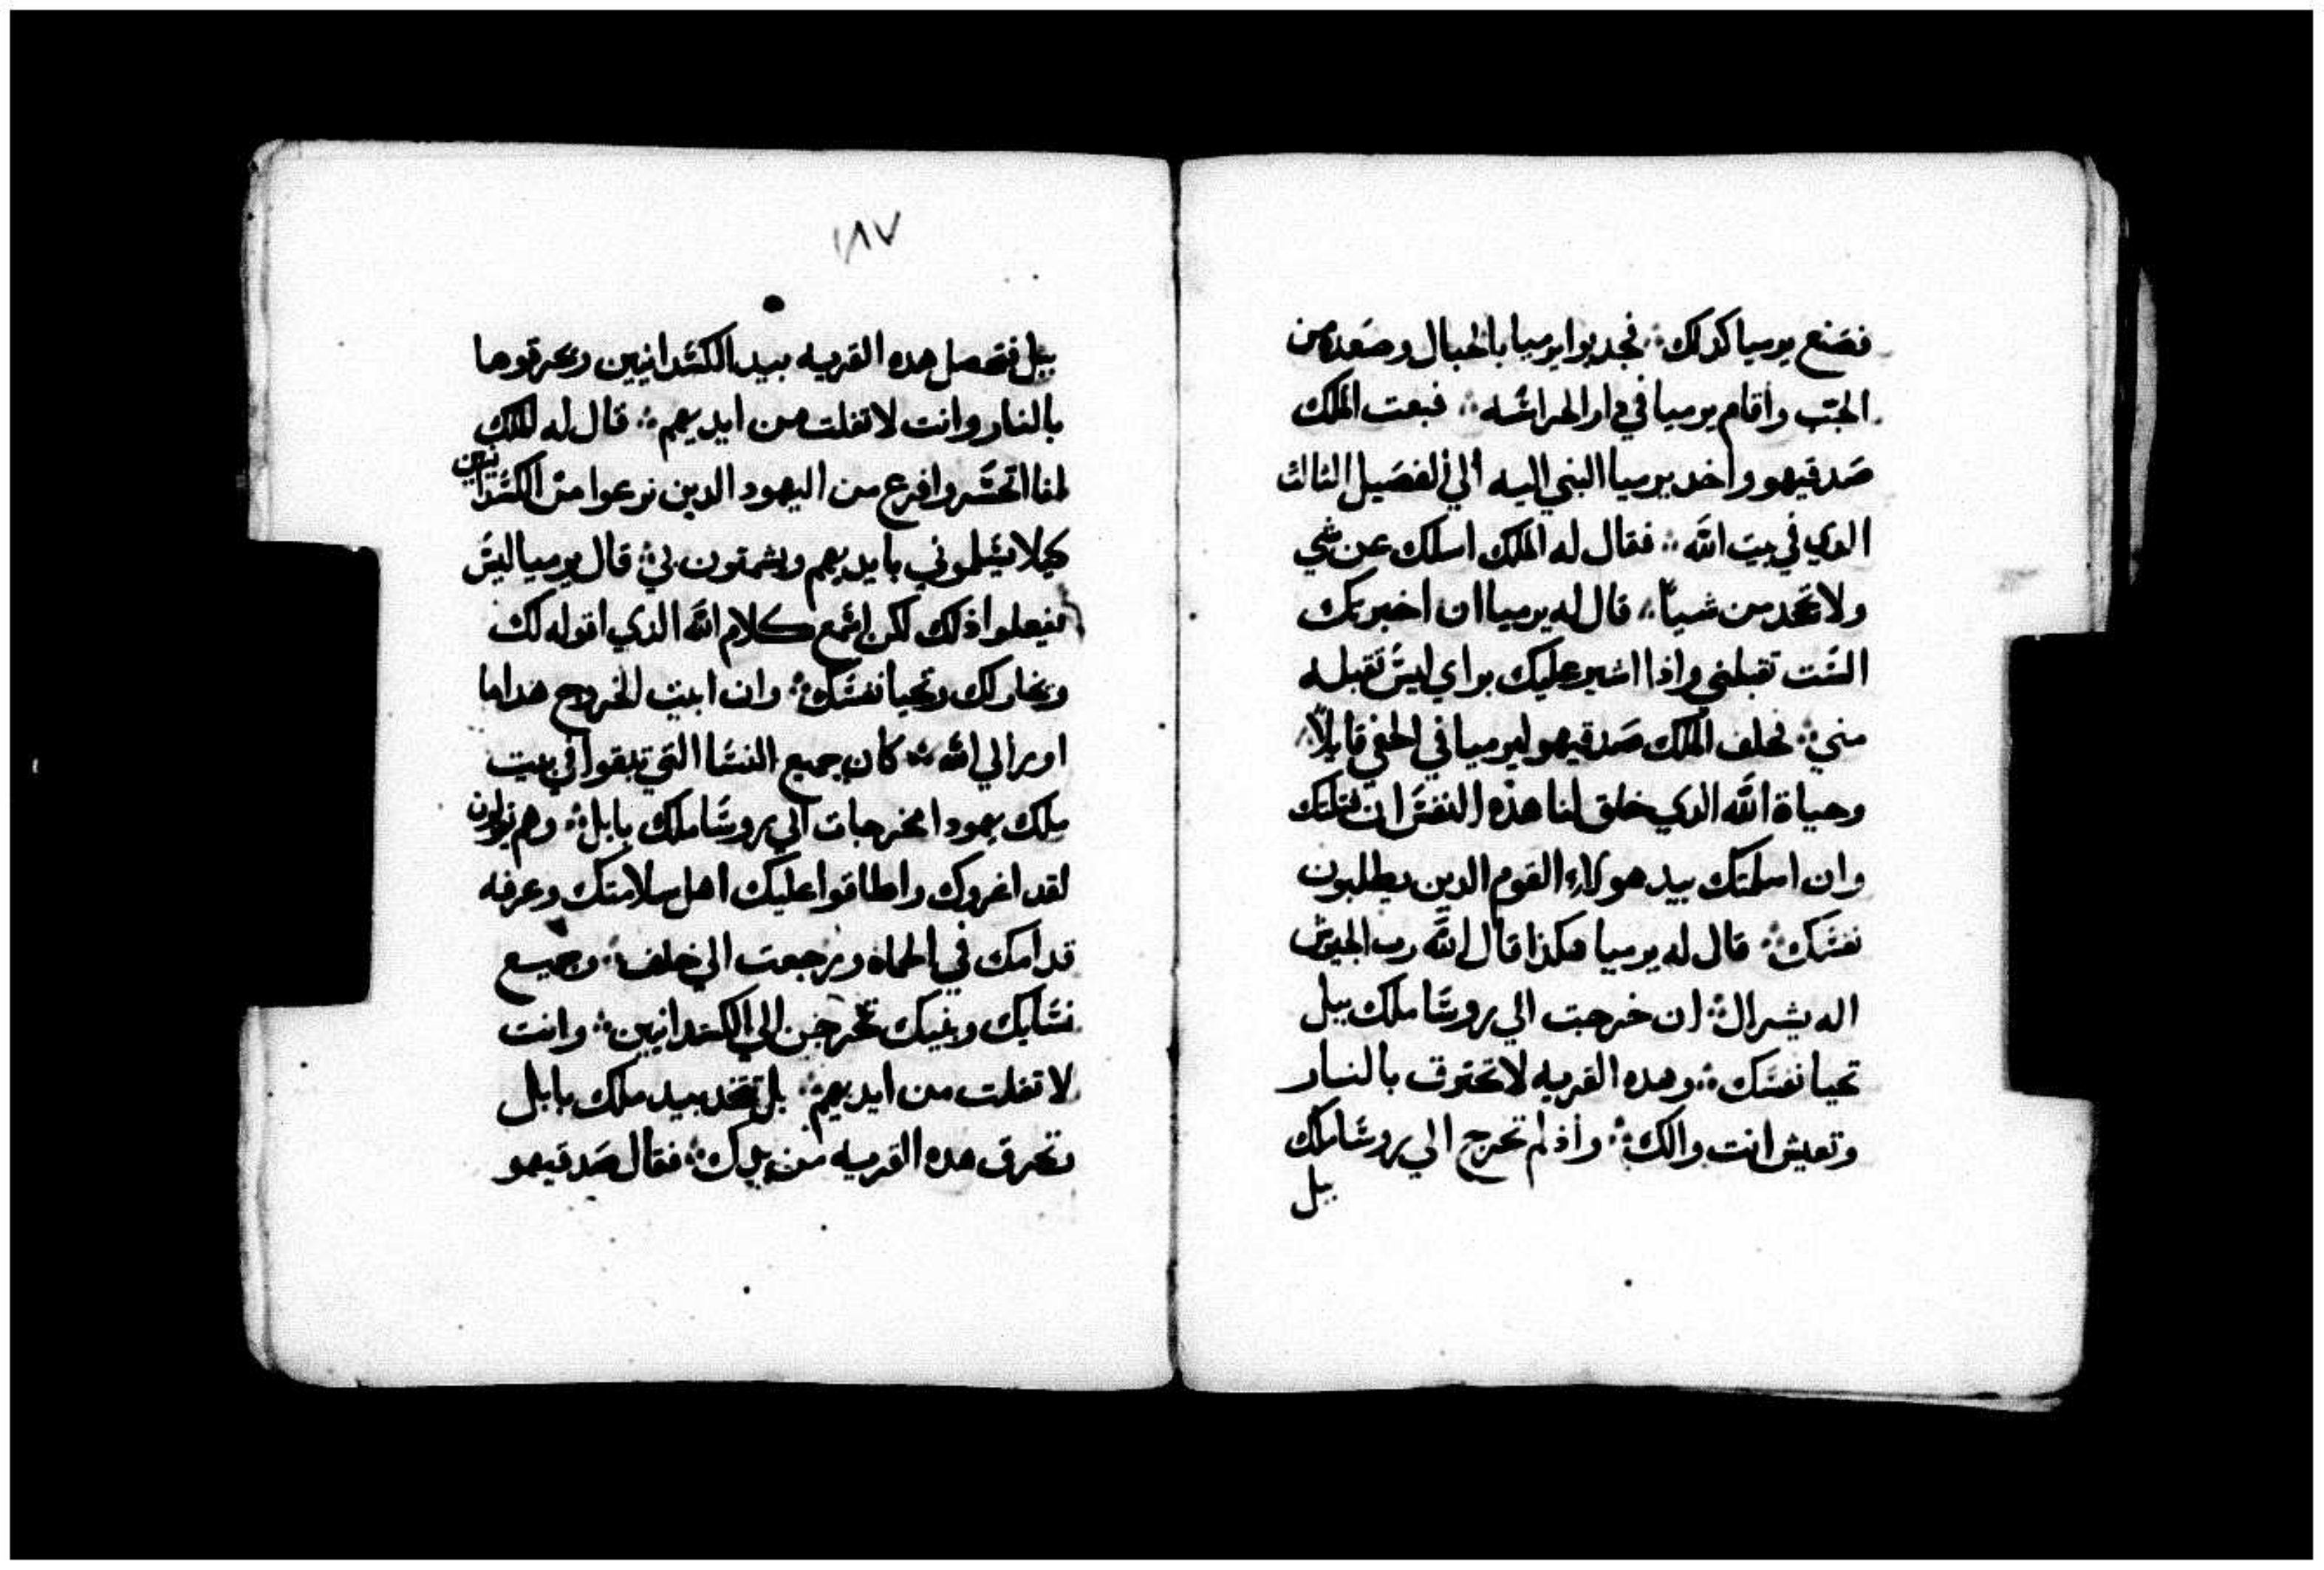 فصنع يرميا كدلك ؞ فجدبوا يرميا بالحبال وصعده من
الجب واقام يرميا في دار الحراسه ؞ فبعت الملك
صدقيهو واخد يرميا النبي اليه الي الفصيل الثالث
الدي في بيت الله ؞ فقال له الملك اسلك عن شي
ولا تجحد من شياً ؞ قال له يرميا ان اخبرتك
الست تقبلني واذا اشير عليك براي ليس تقبله
مني ؞ فحلف الملك صدقيهو ليرميا في الخفي قايلاً
وحياة الله الدي خلق لنا هذه النفس ان قتلتك
وان اسلمتك بيد هولاء القوم الدين يطلبون
نفسك ؞ قال له يرميا هكذا قال الله رب الجيوش
اله يشرال ؞ ان خرجت الي روسا ملك ببل
تحيا نفسك ؞ وهده القريه لا تحترق بالنار
وتعيش انت والك ؞ واذ لم تخرج الي روسا ملك
ببل
١٨٧
ببل فتحصل هده القريه بيد الكسدانيين ويحرقوها
بالنار وانت لا تفلت من ايديهم ؞ قال له الملك
لمنا اتحسر وافزع من اليهود الدين نزعوا من الكسدانيين
كيلا يسلموني بايديهم ويشمتون لي ؞ قال يرميا ليس
يفعلوا ذلك لكن اسمع كلام الله الذي اقوله لك
ويخار لك وتحيا نفسك ؞ وان ابيت الخروج هدا ما
اوراني الله ؞ كان جميع النسا التي تبقوا في بيت
ملك يهودا مخرجات الي روسا ملك بابل ؞ وهم يقولون
لقد اغروك واطاقوا عليك اهل سلامتك وعرفه
قدامك في الحماه ورجعت الي خلف ؞ وجميع
نسايك وبنيك تخرجن الي الكسدانيين ؞ وانت
لا تفلت من ايديهم ؞ بل تتخد بيد ملك بابل
وتحرق هده القريه من يدك ؞ فقال صدقيهو